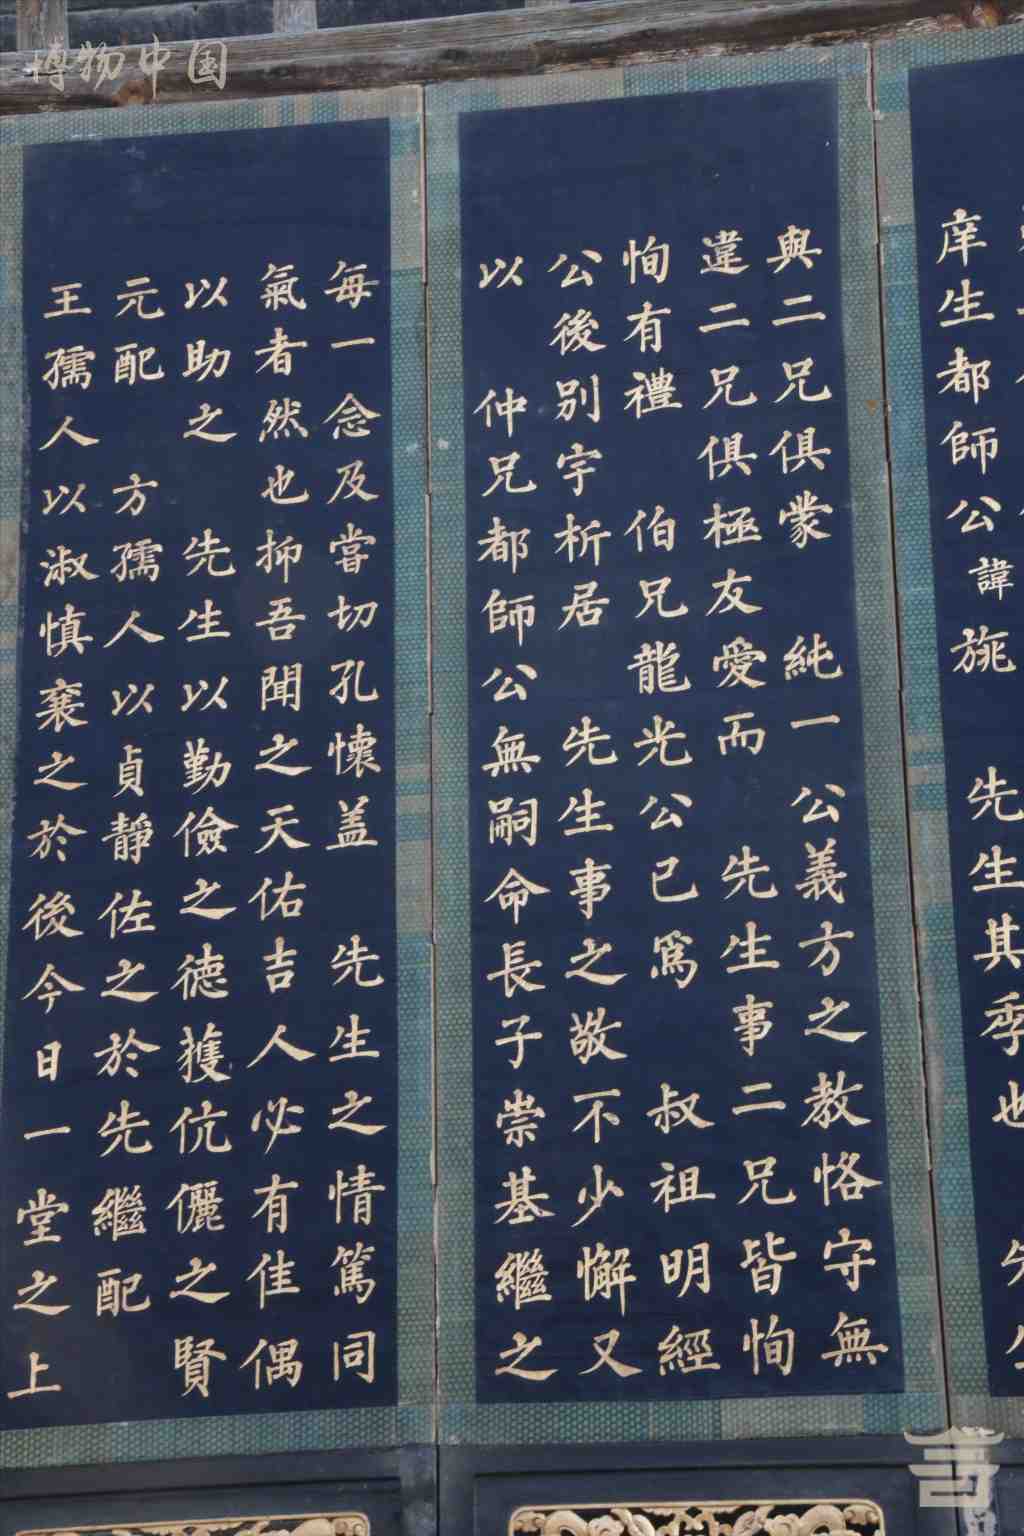 博物中国
庠生都師公諱旐 先生其季也
與二兄俱蒙 純一公義方之教恪守無
違二兄俱極友愛而 先生事二兄皆恂
恂有禮 伯兄龍光公已爲 叔祖明經
公後別宇析居 先生事之敬不少懈又
以 仲兄都師公無嗣命長子崇基繼之
每一念及當切孔懷盖 先生之情篤同
氣者然也抑吾聞之天佑吉人必有佳偶
以助之 先生以勤儉之德獲伉儷之賢
元配 方孺人以貞靜佐之於先繼配
王孺人以淑慎襄之於後今日一堂之上